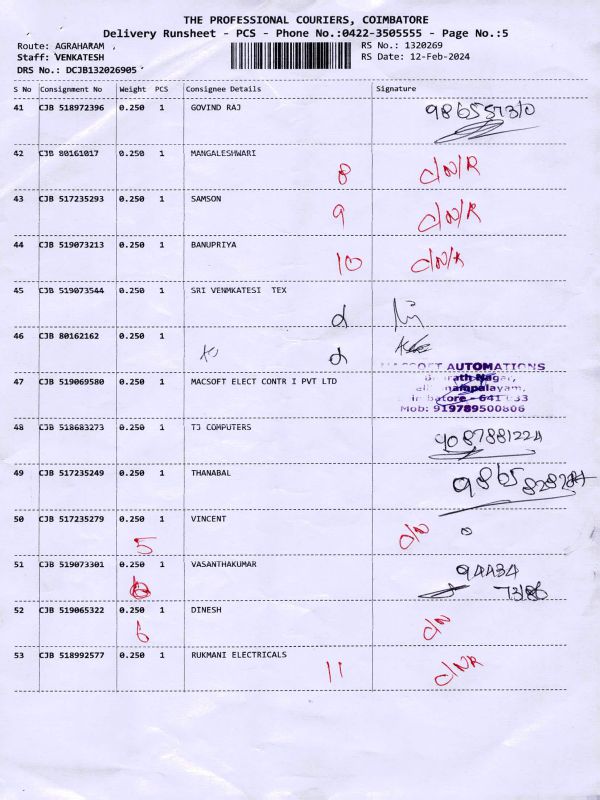 THE PROFESSIONAL COURIERS, COIMBATORE
Delivery Runsheet - PCS - Phone No.:0422-3505555 - Page No.:5
Route: AGRAHARAM , RS No.: 1320269
Staff: VENKATESH RS Date: 12-Feb-2024
DRS No.: DCJB132026905
S No Consignment No Weight PCS Consignee Details Signature
41 CJB 518972396 0.250 1 GOVIND RAJ
42 CJB 80161017 0.250 1 MANGALESHWARI
8 d/N/R
43 CJB 517235293 0.250 1 SAMSON
9 d/N/R
44 CJB 519073213 0.250 1 BANUPRIYA
10 d/N/R
45 CJB 519073544 0.250 1 SRI VENMKATESI TEX
d
46 CJB 80162162 0.250 1
d
AUTOMATIONS
47 CJB 519069580 0.250 1 MACSOFT ELECT CONTR I PVT LTD
Nagar,
palayam,
batore - 641 033
Mob: 919789500806
48 CJB 518683273 0.250 1 TJ COMPUTERS
9087881224
49 CJB 517235249 0.250 1 THANABAL
9865 828284
50 CJB 517235279 0.250 1 VINCENT
5 d/N
51 CJB 519073301 0.250 1 VASANTHAKUMAR
94434
73186
52 CJB 519065322 0.250 1 DINESH
6 d/N
53 CJB 518992577 0.250 1 RUKMANI ELECTRICALS
11 d/NR